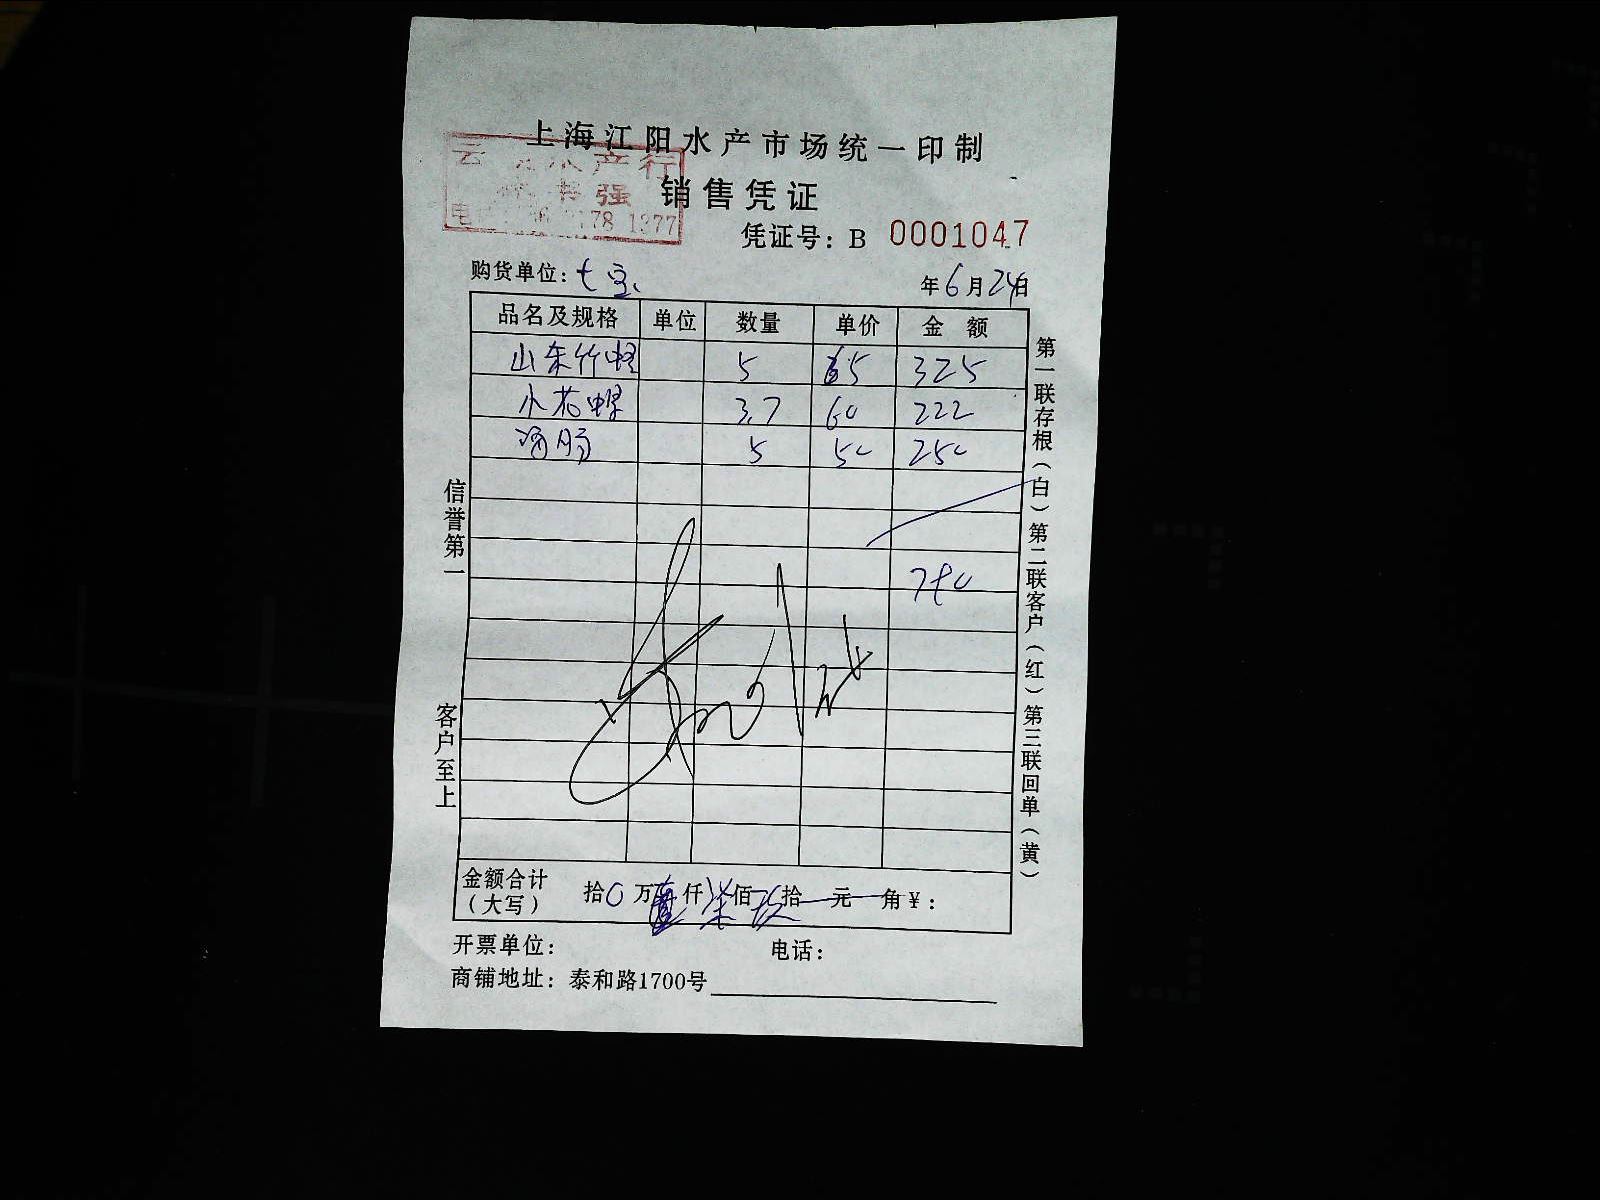 上海江阳水产市场统一印制
云 水产行
销售凭证
强
电 78 1377
凭证号：B 0001047
购货单位：七宝 年6月24日
品名及规格 单位 数量 单价 金 额
山东竹蛏 5 65 325
小花螺 3.7 60 222
海肠 5 50 250
信誉第一
客户至上
第一联存根（白）第二联客户（红）第三联回单（黄）
金额合计（大写） 拾0万 仟柒佰玖拾 元 角￥：
开票单位： 电话：
商铺地址：泰和路1700号